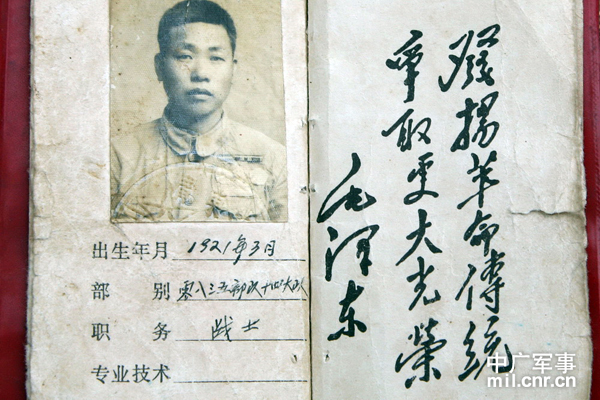 出生年月 1921年3月
部别 零八三五部队十四大队
职务 战士
专业技术
發揚革命傳統
爭取更大光榮
毛泽东
中广军事
mil.cnr.cn